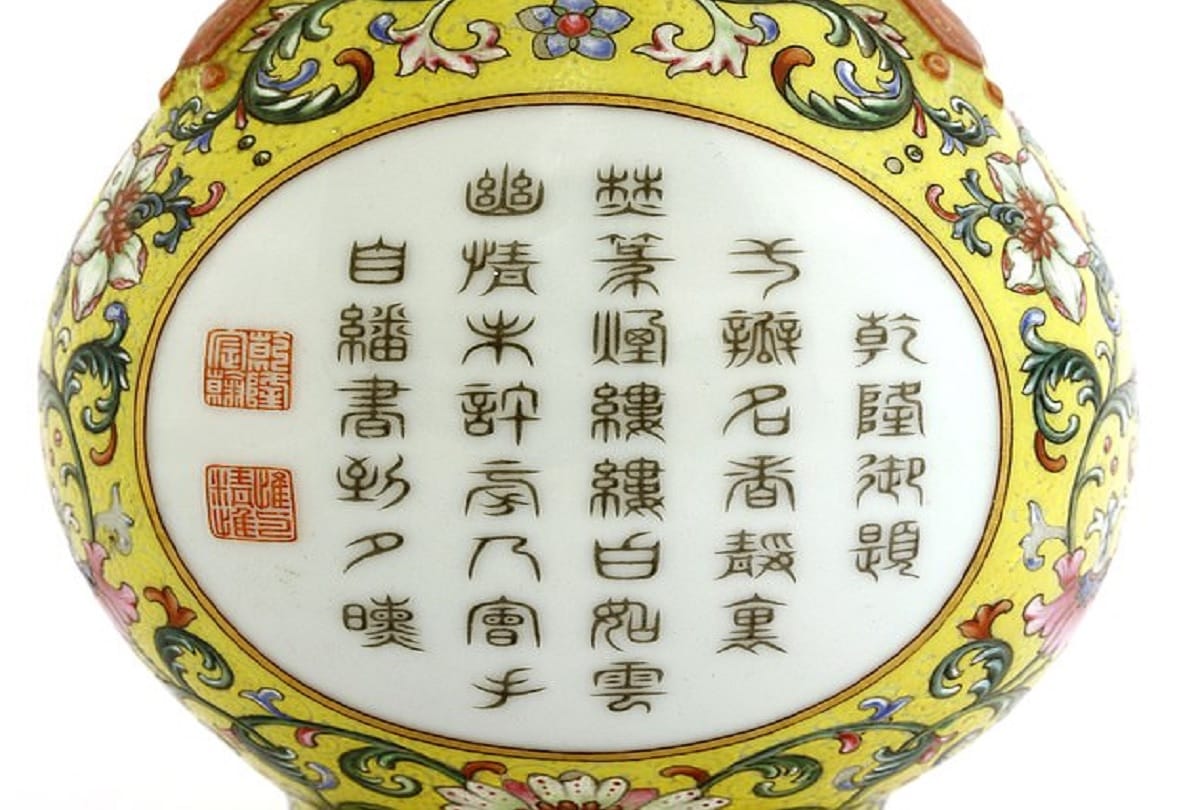 乾隆御題
瓣名香靜裏
焚篆煙縷縷白如雲
幽情未許旁人會手
自繙書到夕曛
乾隆宸翰
惟精惟一